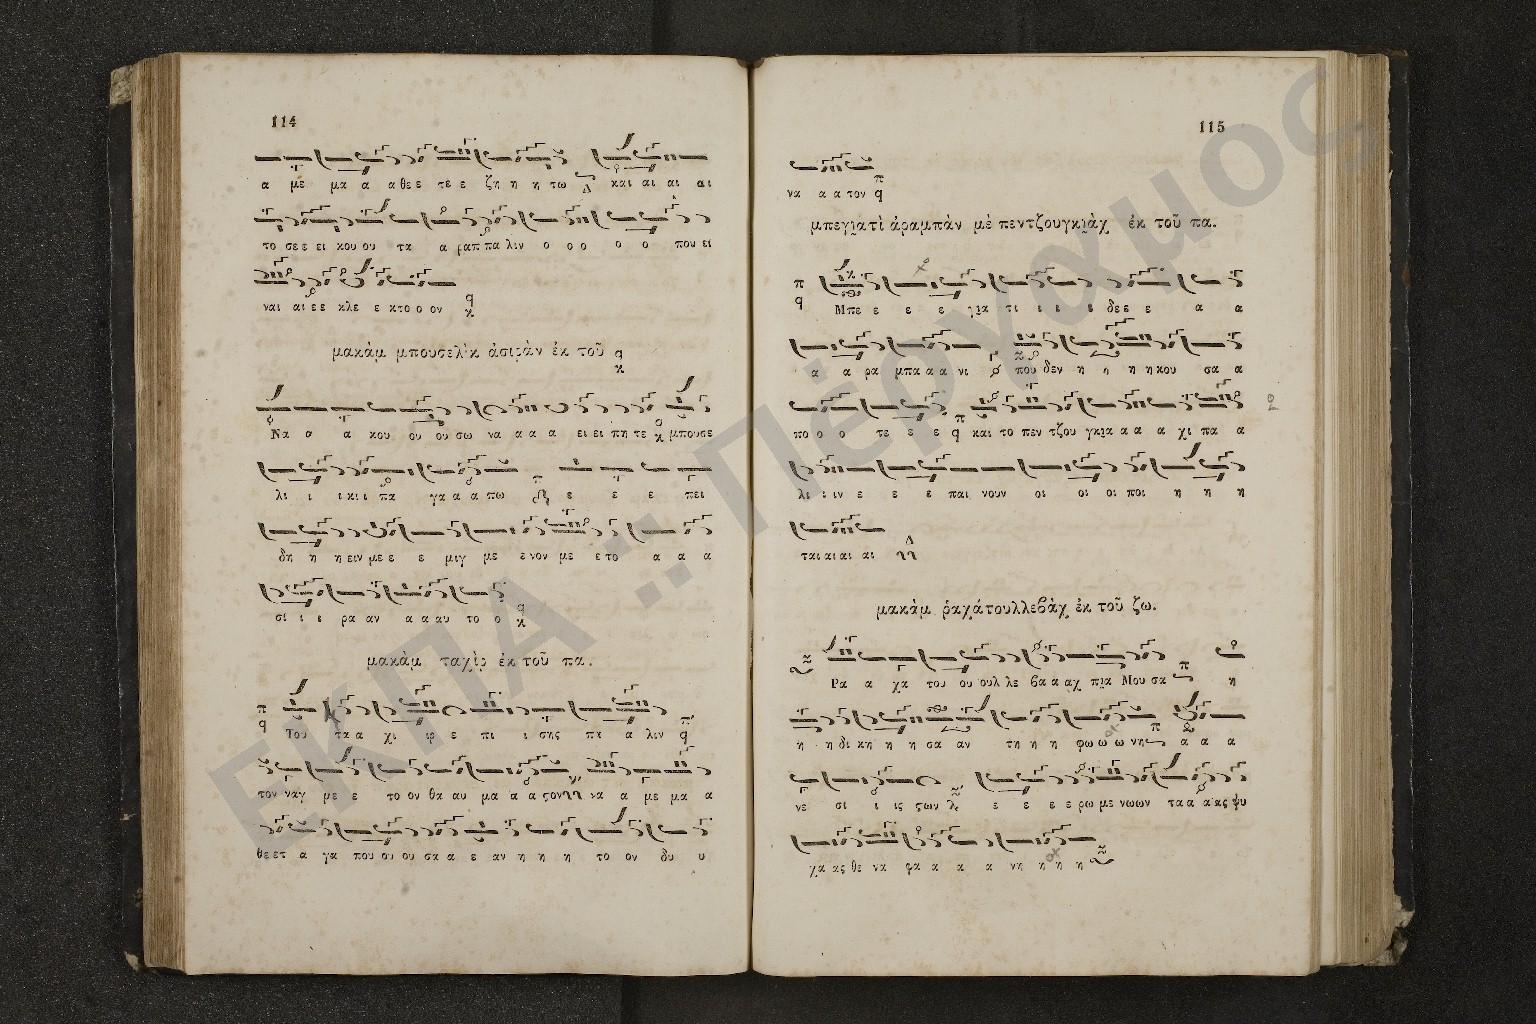 114
α με μα α α θε ε τε ε ζη η η τω και αι αι αι
το σε ε ει κου ου τα α ραπ πα λιν ο ο ο ο ο που ει
ναι αι ε ε κλε ε κτο ο ον
μακὰμ μπουσελὶκ ἀσιρὰν ἐκ τοῦ
Να α α κου ου ου σω να α α α ει ει πη τε μπουσε
λι ι ι κι ι πα γα α α πω ε ε ε πει
δη η η ειν με ε ε μιγ με ε νον με ε το α α α
σι ι ε ρα αν α α αυ το ο
μακὰμ ταχὶρ ἐκ τοῦ πα.
Του τα α χι φ ε πι ι σης πα α λιν
τον ναγ με ε το ον θα αυ μα α α στον να α με μα α
θε ετ α γα που ου ου σα α ε αν η η η το ον δυ υ
115
να α α τον
μπεγιατὶ ἀραμπὰν μὲ πεντζουγκιὰχ ἐκ τοῦ πα.
Μπε ε ε ε για τι ι ι ι δε ε ε α α
α α ρα μπα α α νι που δεν η η η η κου σα α
πο ο ο τε ε ε και το πεν τζου γκια α α α χι πα α
λι ι ιν ε ε ε παι νουν οι οι οι ποι η η η
ται αι αι αι
μακὰμ ῥαχάτουλλεβὰχ ἐκ τοῦ ζω.
Ρα α χα του ου ουλ λε βα α αχ πια Μου σα η
η η δι κη η η σα αν τη η η φω ω ω νη α α α
νε σι ι ις των ε ε ε ε ρω με νω ων τα α α ας ψυ
χα ας θε να φα α α α νη η η η
ΕΚΠΑ :: Πέργαμος